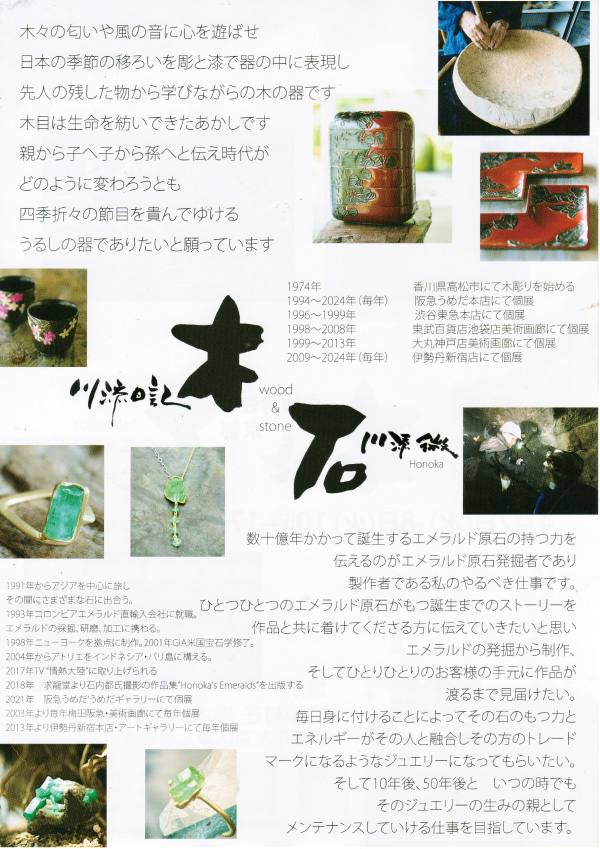 木々の匂いや風の音に心を遊ばせ
日本の季節の移ろいを彫と漆で器の中に表現し
先人の残した物から学びながらの木の器です
木目は生命を紡いできたあかしです
親から子へ子から孫へと伝え時代が
どのように変わろうとも
四季折々の節目を貴んでゆける
うるしの器でありたいと願っています
1974年 香川県高松市にて木彫りを始める
1994〜2024年(毎年) 阪急うめだ本店にて個展
1996〜1999年 渋谷東急本店にて個展
1998〜2008年 東武百貨店池袋店美術画廊にて個展
1999〜2013年 大丸神戸店美術画廊にて個展
2009〜2024年(毎年) 伊勢丹新宿店にて個展
木
川添日記
wood
&
stone
石
川添微
Honoka
数十億年かかって誕生するエメラルド原石の持つ力を
伝えるのがエメラルド原石発掘者であり
製作者である私のやるべき仕事です。
ひとつひとつのエメラルド原石がもつ誕生までのストーリーを
作品と共に着けてくださる方に伝えていきたいと思い
エメラルドの発掘から制作、
そしてひとりひとりのお客様の手元に作品が
渡るまで見届けたい。
毎日身に付けることによってその石のもつ力と
エネルギーがその人と融合しその方のトレード
マークになるようなジュエリーになってもらいたい。
そして10年後、50年後と いつの時でも
そのジュエリーの生みの親として
メンテナンスしていける仕事を目指しています。
1991年からアジアを中心に旅し
その間にさまざまな石に出合う。
1993年コロンビアエメラルド直輸入会社に就職。
エメラルドの採掘、研磨、加工に携わる。
1998年ニューヨークを拠点に制作。2001年GIA米国宝石学修了。
2004年からアトリエをインドネシア・バリ島に構える。
2017年TV"情熱大陸"に取り上げられる
2018年 求龍堂より石内都氏撮影の作品集"Honoka's Emeralds"を出版する
2021年 阪急うめだ'うめだギャラリーにて個展
2003年より毎年梅田阪急・美術画廊にて毎年個展
2013年より伊勢丹新宿本店・アートギャラリーにて毎年個展